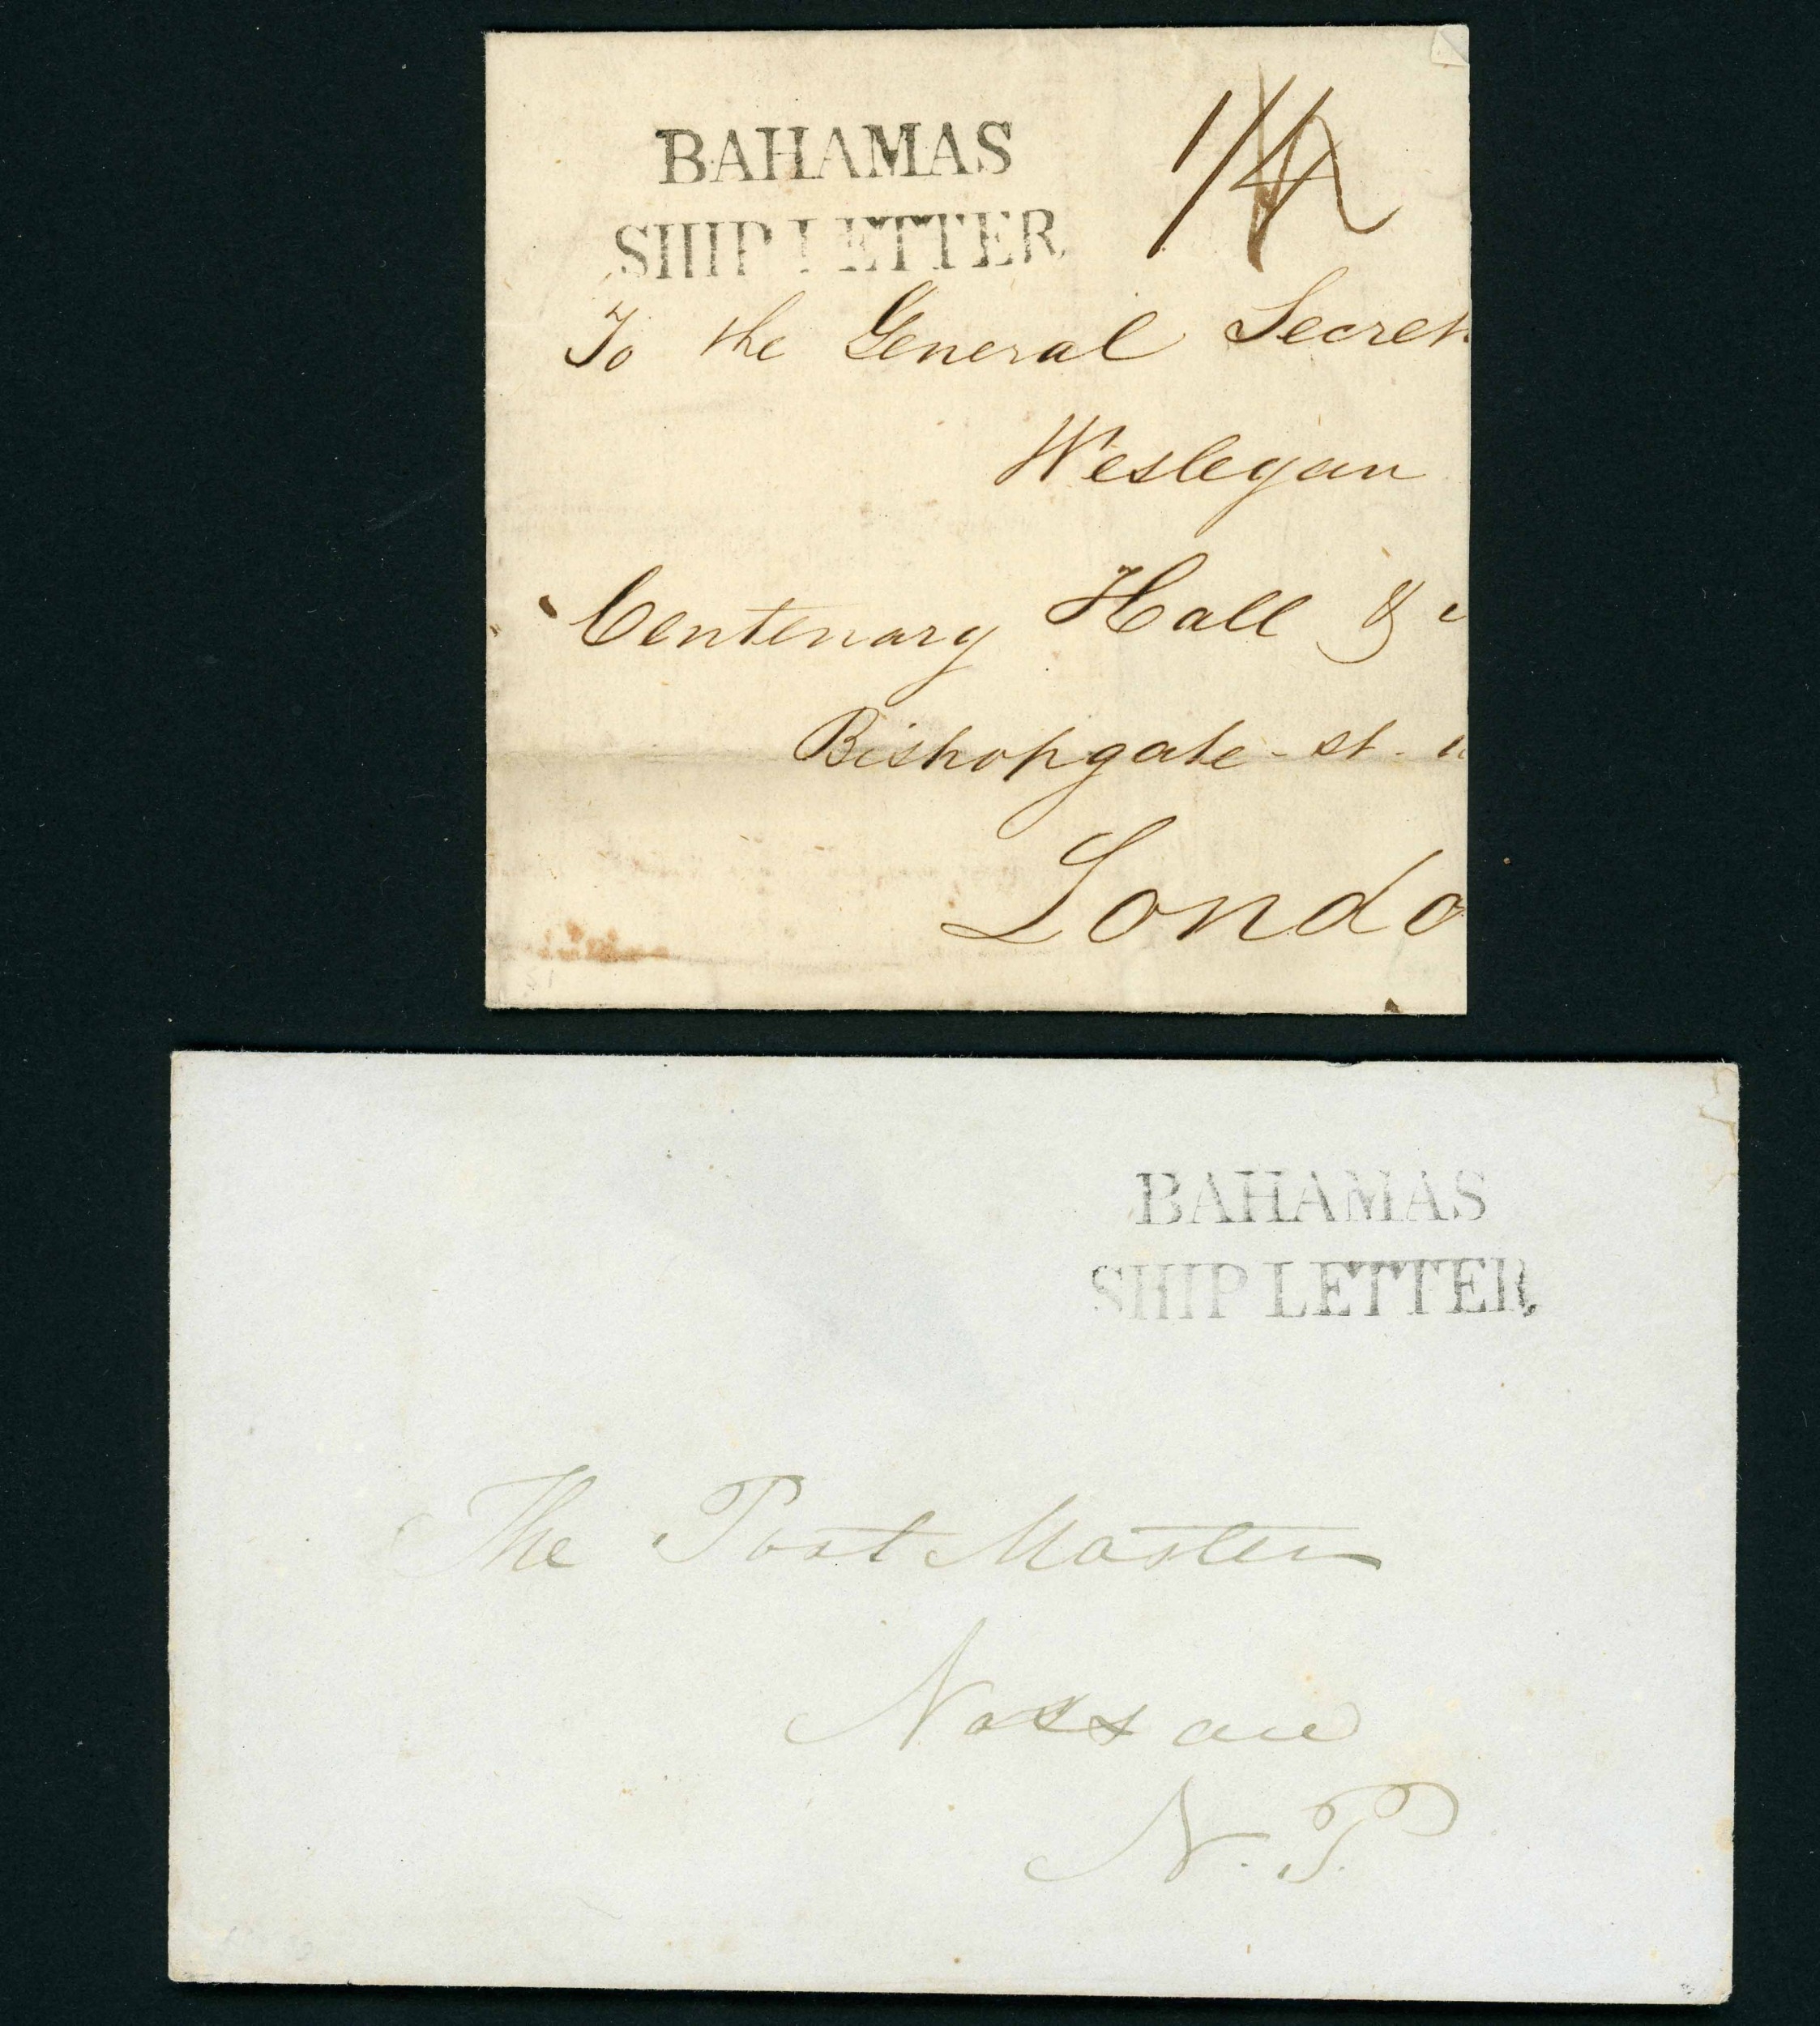 BAHAMAS
SHIP LETTER
1/4
To the General Secret
Wesleyan
Centenary Hall &
Bishopgate - st.
Londo
BAHAMAS
SHIP LETTER
The Post Master
Nassau
N. P.